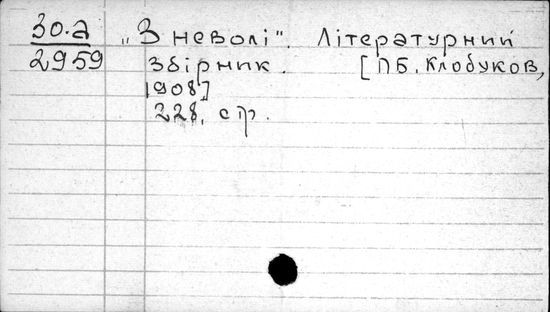 30.а „З неволі". Літературний
2959 збірник. [ПБ, Клобуков,
1908]
228, стр.